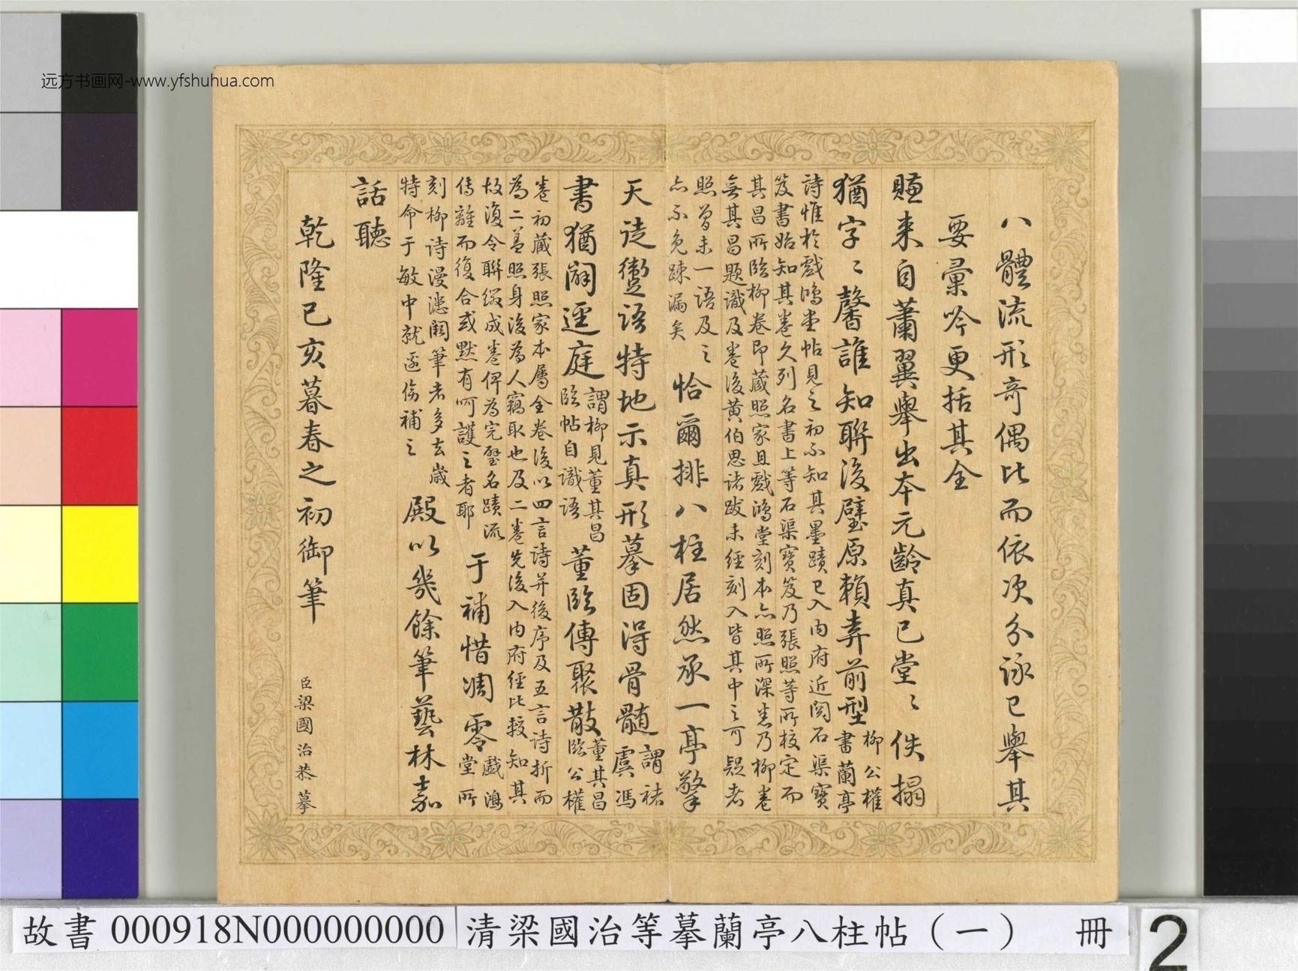 远方书画网-www.yfshuhua.com
八體流形奇偶比而依次分詠已舉其
要彙吟更括其全
賺來自蕭翼舉出本元齡真已堂〻佚搨
猶字〻馨誰知聯後璧原賴弆前型
柳公權
書蘭亭
詩惟於戲鴻堂帖見之初不知其墨蹟已入內府近閱石渠寶
笈書始知其卷久列名書上等石渠寶笈乃張照等所校定而
其昌所臨柳卷即藏照家且戲鴻堂刻本亦照所深悉乃柳卷
無其昌題識及卷後黃伯思諸跋未經刻入皆其中之可疑者
照曾未一語及之
亦不免踈漏矣
恰爾排八柱居然承一亭擎
天徒讆語特地示真形摹固得骨髓
謂褚
虞馮
書猶闢逕庭
謂柳見董其昌
臨帖自識語
董臨傳聚散
董其昌
臨公權
卷初藏張照家本屬全卷後以四言詩并後序及五言詩折而
為二蓋照身後為人竊取也及二卷先後入內府經比較知其
故復令聯綴成卷俾為完璧名蹟流
傳離而復合或默有呵護之者耶
于補惜凋零
戲鴻
堂所
刻柳詩漫漶闕筆者多去歲
特命于敏中就邊傍補之
殿以幾餘筆藝林嘉
話聽
乾隆己亥暮春之初御筆
臣梁國治恭摹
故書 000918N000000000
清梁國治等摹蘭亭八柱帖（一） 冊
2